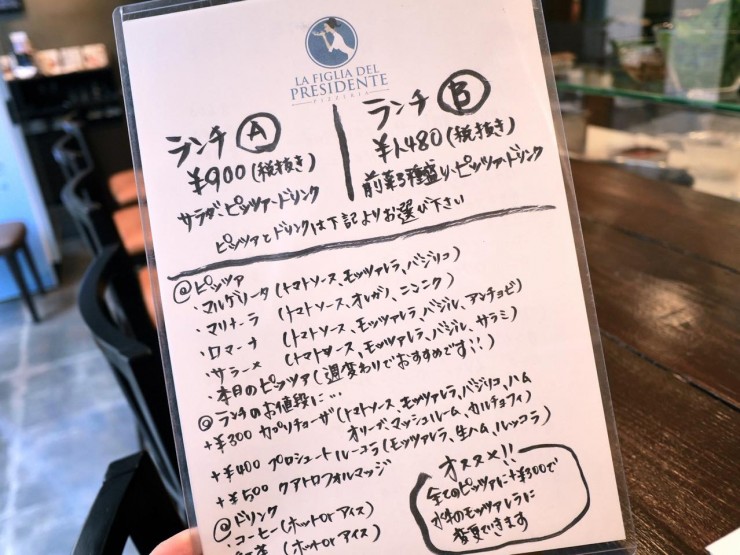 LA FIGLIA DEL
PRESIDENTE
PIZZERIA
ランチ Ⓐ
¥900(税抜き)
サラダ、ピッツァ、ドリンク
ランチ Ⓑ
¥1,480(税抜き)
前菜3種盛り、ピッツァ、ドリンク
ピッツァとドリンクは下記よりお選び下さい
@ピッツァ
・マルゲリータ(トマトソース、モッツァレラ、バジリコ)
・マリナーラ(トマトソース、オレガノ、ニンニク)
・ロマーナ(トマトソース、モッツァレラ、バジル、アンチョビ)
・サラーメ(トマトソース、モッツァレラ、バジル、サラミ)
・本日のピッツァ(週変わりでおすすめです!!)
@ランチのお値段に…
+¥300 カプリチョーザ(トマトソース、モッツァレラ、バジリコ、ハム
オリーブ、マッシュルーム、カルチョフィ)
+¥400 プロシュートルーコラ(モッツァレラ、生ハム、ルッコラ)
+¥500 クアトロフォルマッジ
@ドリンク
・コーヒー(ホットorアイス)
(ホットorアイス)
オススメ!!
全てのピッツァに+¥300で
水牛のモッツァレラに
変更できます